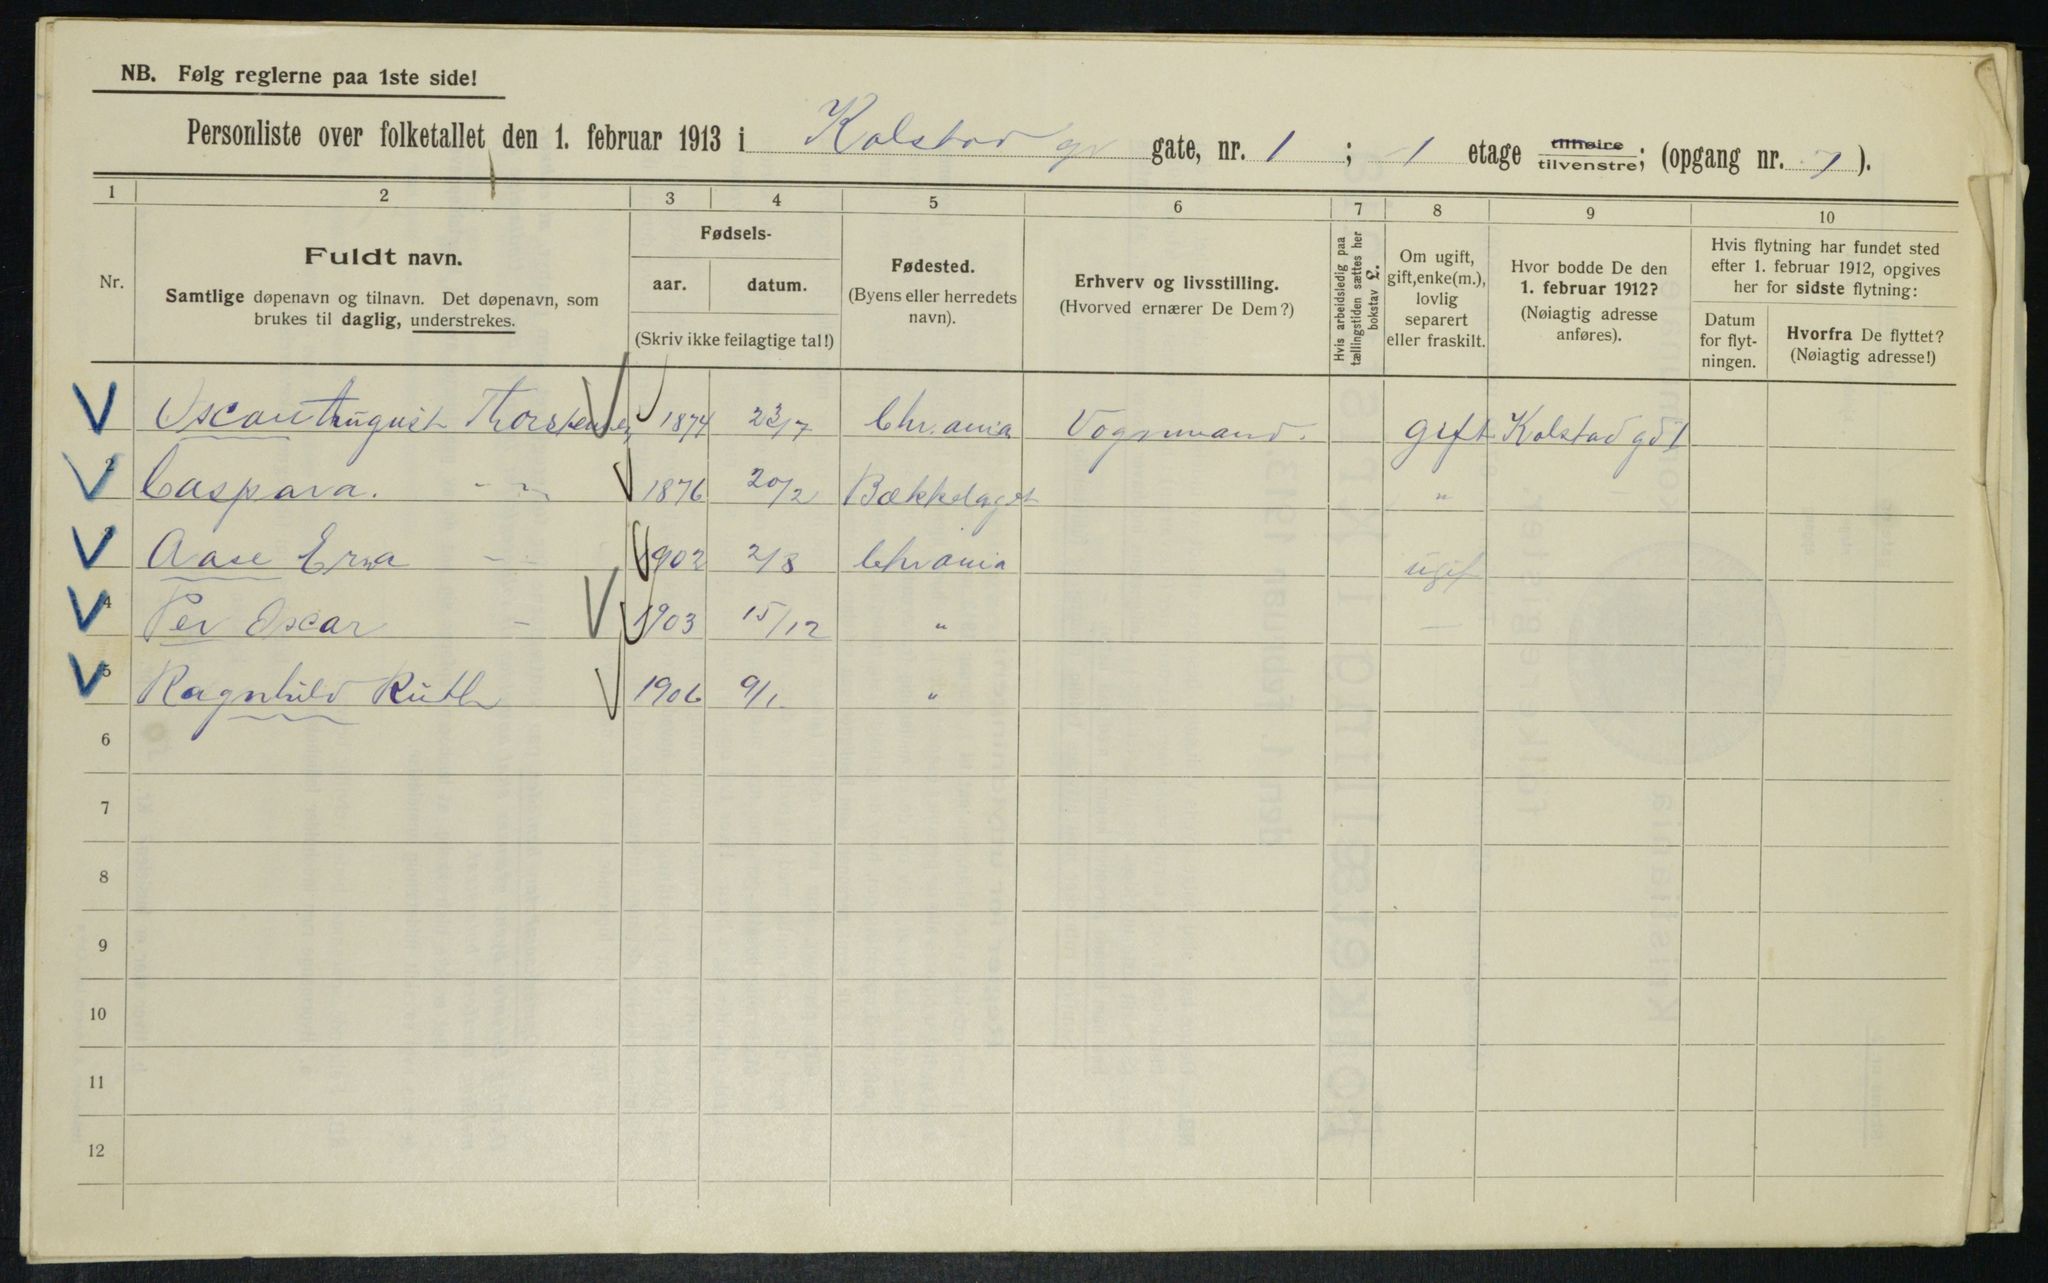 NB. Følg reglerne paa 1ste side!
Personliste over folketallet den 1. februar 1913 i Kolstad gt gate, nr. 1 ; 1 etage tilhøire tilvenstre; (opgang nr. 7 ).
1 2 3 4 5 6 7 8 9 10
Nr.
Fuldt navn.
Samtlige døpenavn og tilnavn. Det døpenavn, som
brukes til daglig, understrekes.
Fødsels-
aar. datum.
(Skriv ikke feilagtige tal!)
Fødested.
(Byens eller herredets
navn).
Erhverv og livsstilling.
(Hvorved ernærer De Dem?)
Hvis arbeidsledig paa
tællingstiden sættes her
bokstav £.
Om ugift,
gift, enke(m.),
lovlig
separert
eller fraskilt.
Hvor bodde De den
1. februar 1912?
(Nøiagtig adresse
anføres).
Hvis flytning har fundet sted
efter 1. februar 1912, opgives
her for sidste flytning:
Datum
for flyt-
ningen.
Hvorfra De flyttet?
(Nøiagtig adresse!)
Oscar August Thorstensen 1874 23/7 Chr.ania Vognmand. gift Kolstad gd 1
2 Caspara. - „ - 1876 20/2 Bækkelaget "
3 Aase Erna - „ 1902 2/8 Chrania ugif
4 Per Oscar - 1903 15/12 " —
5 Ragnhild Ruth 1906 9/1 "
6
7
8
9
10
11
12